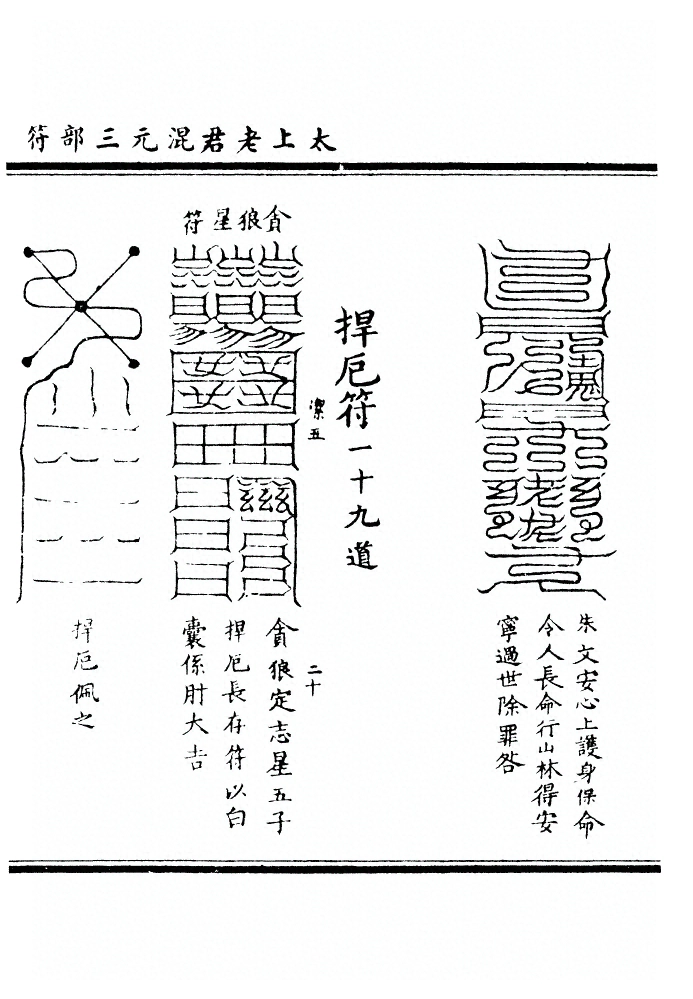 太上老君混元三部符
朱文安心上護身保命
令人長命行山林得安
寧過世除罪咎
捍厄符一十九道
潔五
二十
貪狼星符
貪狼定志星五子
捍厄長存符以白
囊係肘大吉
捍厄佩之